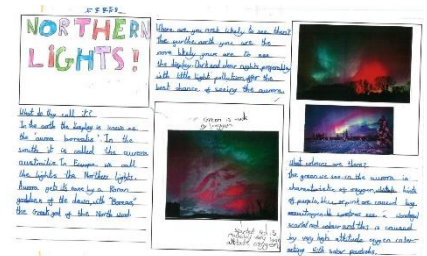 NORTHERN
LIGHTS!
What do they call it?
In the north the display is known as
the "aurora borealis". In the
south it is called the aurora
australis. In Europe we call
the lights the Northern Lights.
Aurora gets its name by a Roman
goddess of the dawn, with "Boreas"
the Greek god of the North wind
Where are you most likely to see them?
The further north you are the
more likely you are to see
the display. Dark and clear nights, preferably
with little light pollution, offer the
best chance of seeing the aurora.
green is made
by oxygen
What colours are there?
the green we see in the aurora is
characteristic of oxygen, hints
of purple, are caused by
scarlet red colour and this is caused
by very high altitude oxygen
with solar particles.